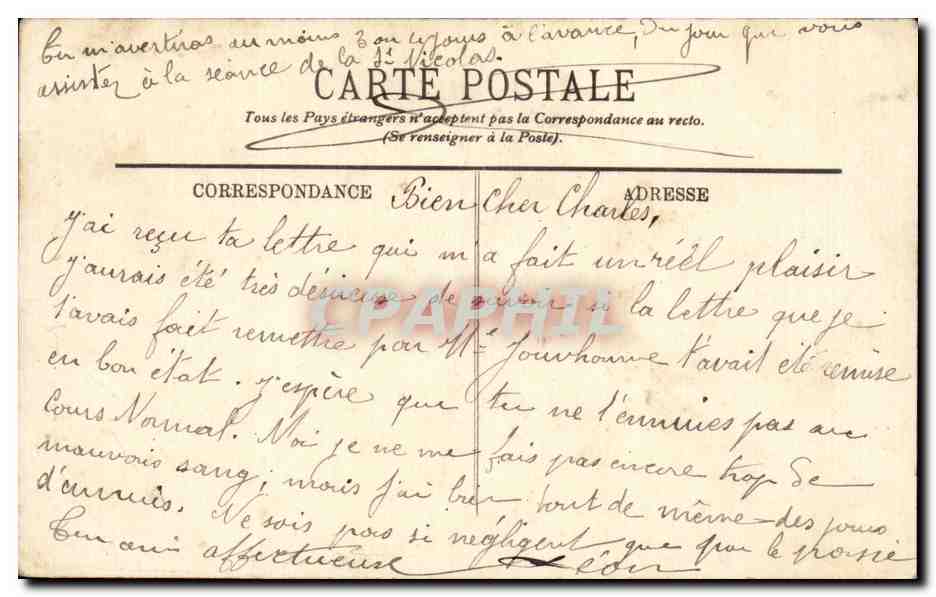 Tu m'avertiras au moins 3 ou 4 jours à l'avance, du jour que vous
assistez à la séance de la St Nicolas.
CARTE POSTALE
Tous les Pays étrangers n'acceptent pas la Correspondance au recto.
(Se renseigner à la Poste).
CORRESPONDANCE
ADRESSE
Bien cher Charles,
J'ai reçu ta lettre qui m'a fait un réel plaisir
j'aurais été très désireux de savoir si la lettre que je
t'avais fait remettre par Mr t'avait été remise
en bon état. J'espère que tu ne t'ennuies pas au
Cours Normal. Moi je ne me fais pas encore trop de
mauvais sang, mais j'ai bien tout de même des jours
d'ennuis. Ne sois pas si négligent que par le passé
Ton ami affectueux Léon
CPAPHIL